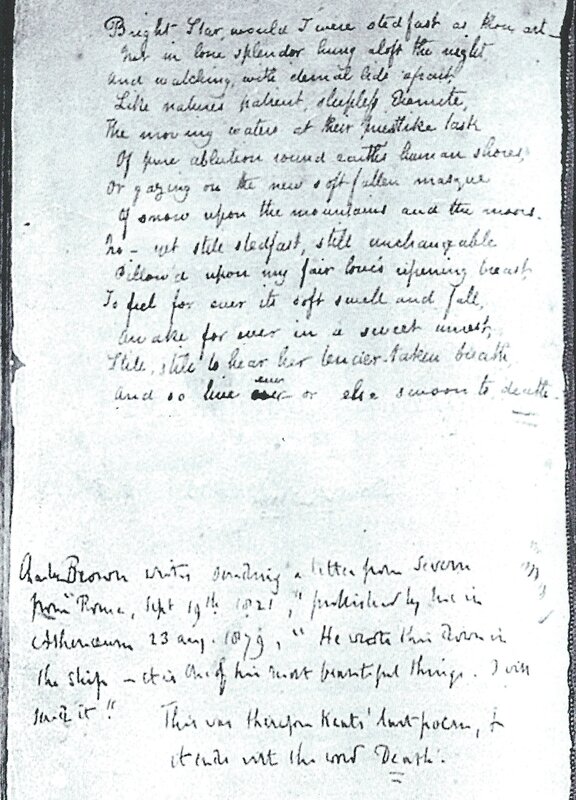 Bright Star, would I were stedfast as thou art—
Not in lone splendor hung aloft the night
And watching, with eternal lids apart,
Like natures patient, sleepless Eremite,
The moving waters at their priestlike task
Of pure ablution round earths human shores,
Or gazing on the new soft fallen masque
Of snow upon the mountains and the moors.
No — yet still stedfast, still unchangeable
Pillow'd upon my fair love's ripening breast,
To feel for ever its soft swell and fall,
Awake for ever in a sweet unrest,
Still, still to hear her tender-taken breath,
ever
And so live or else swoon to death—
Charles Brown writes a letter from Severn
from "Rome, Sept 19th 1821," published by in
Athenæum 23 aug. 1879, "He wrote this down in
the ship — it is one of his most beautiful things. I will
send it".
This was therefore Keats' last poem, &
it ends with the word Death.